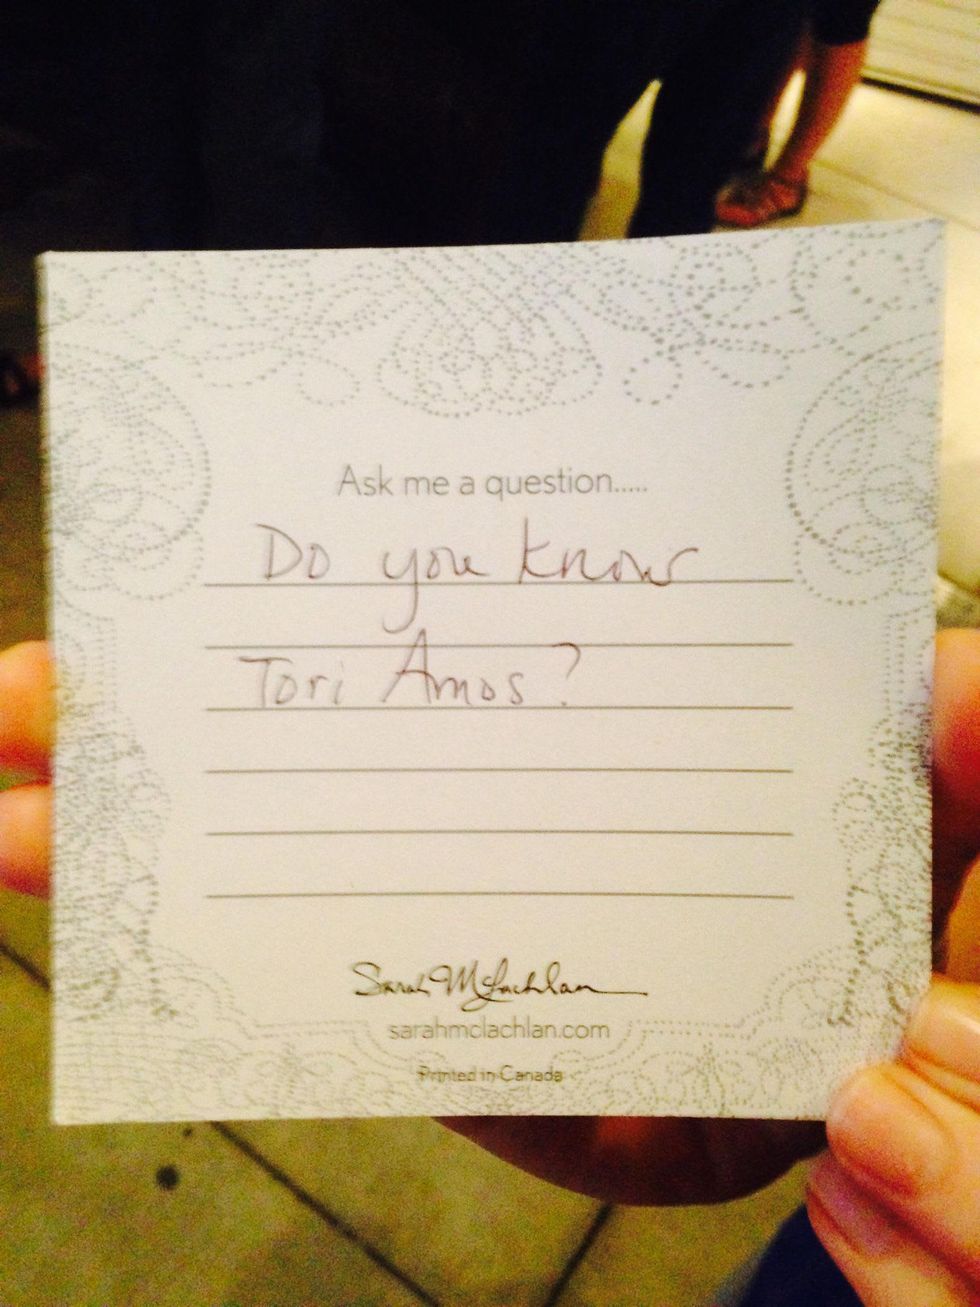 Ask me a question.....
Do you know
Tori Amos?
Sarah McLachlan
sarahmclachlan.com
Printed in Canada